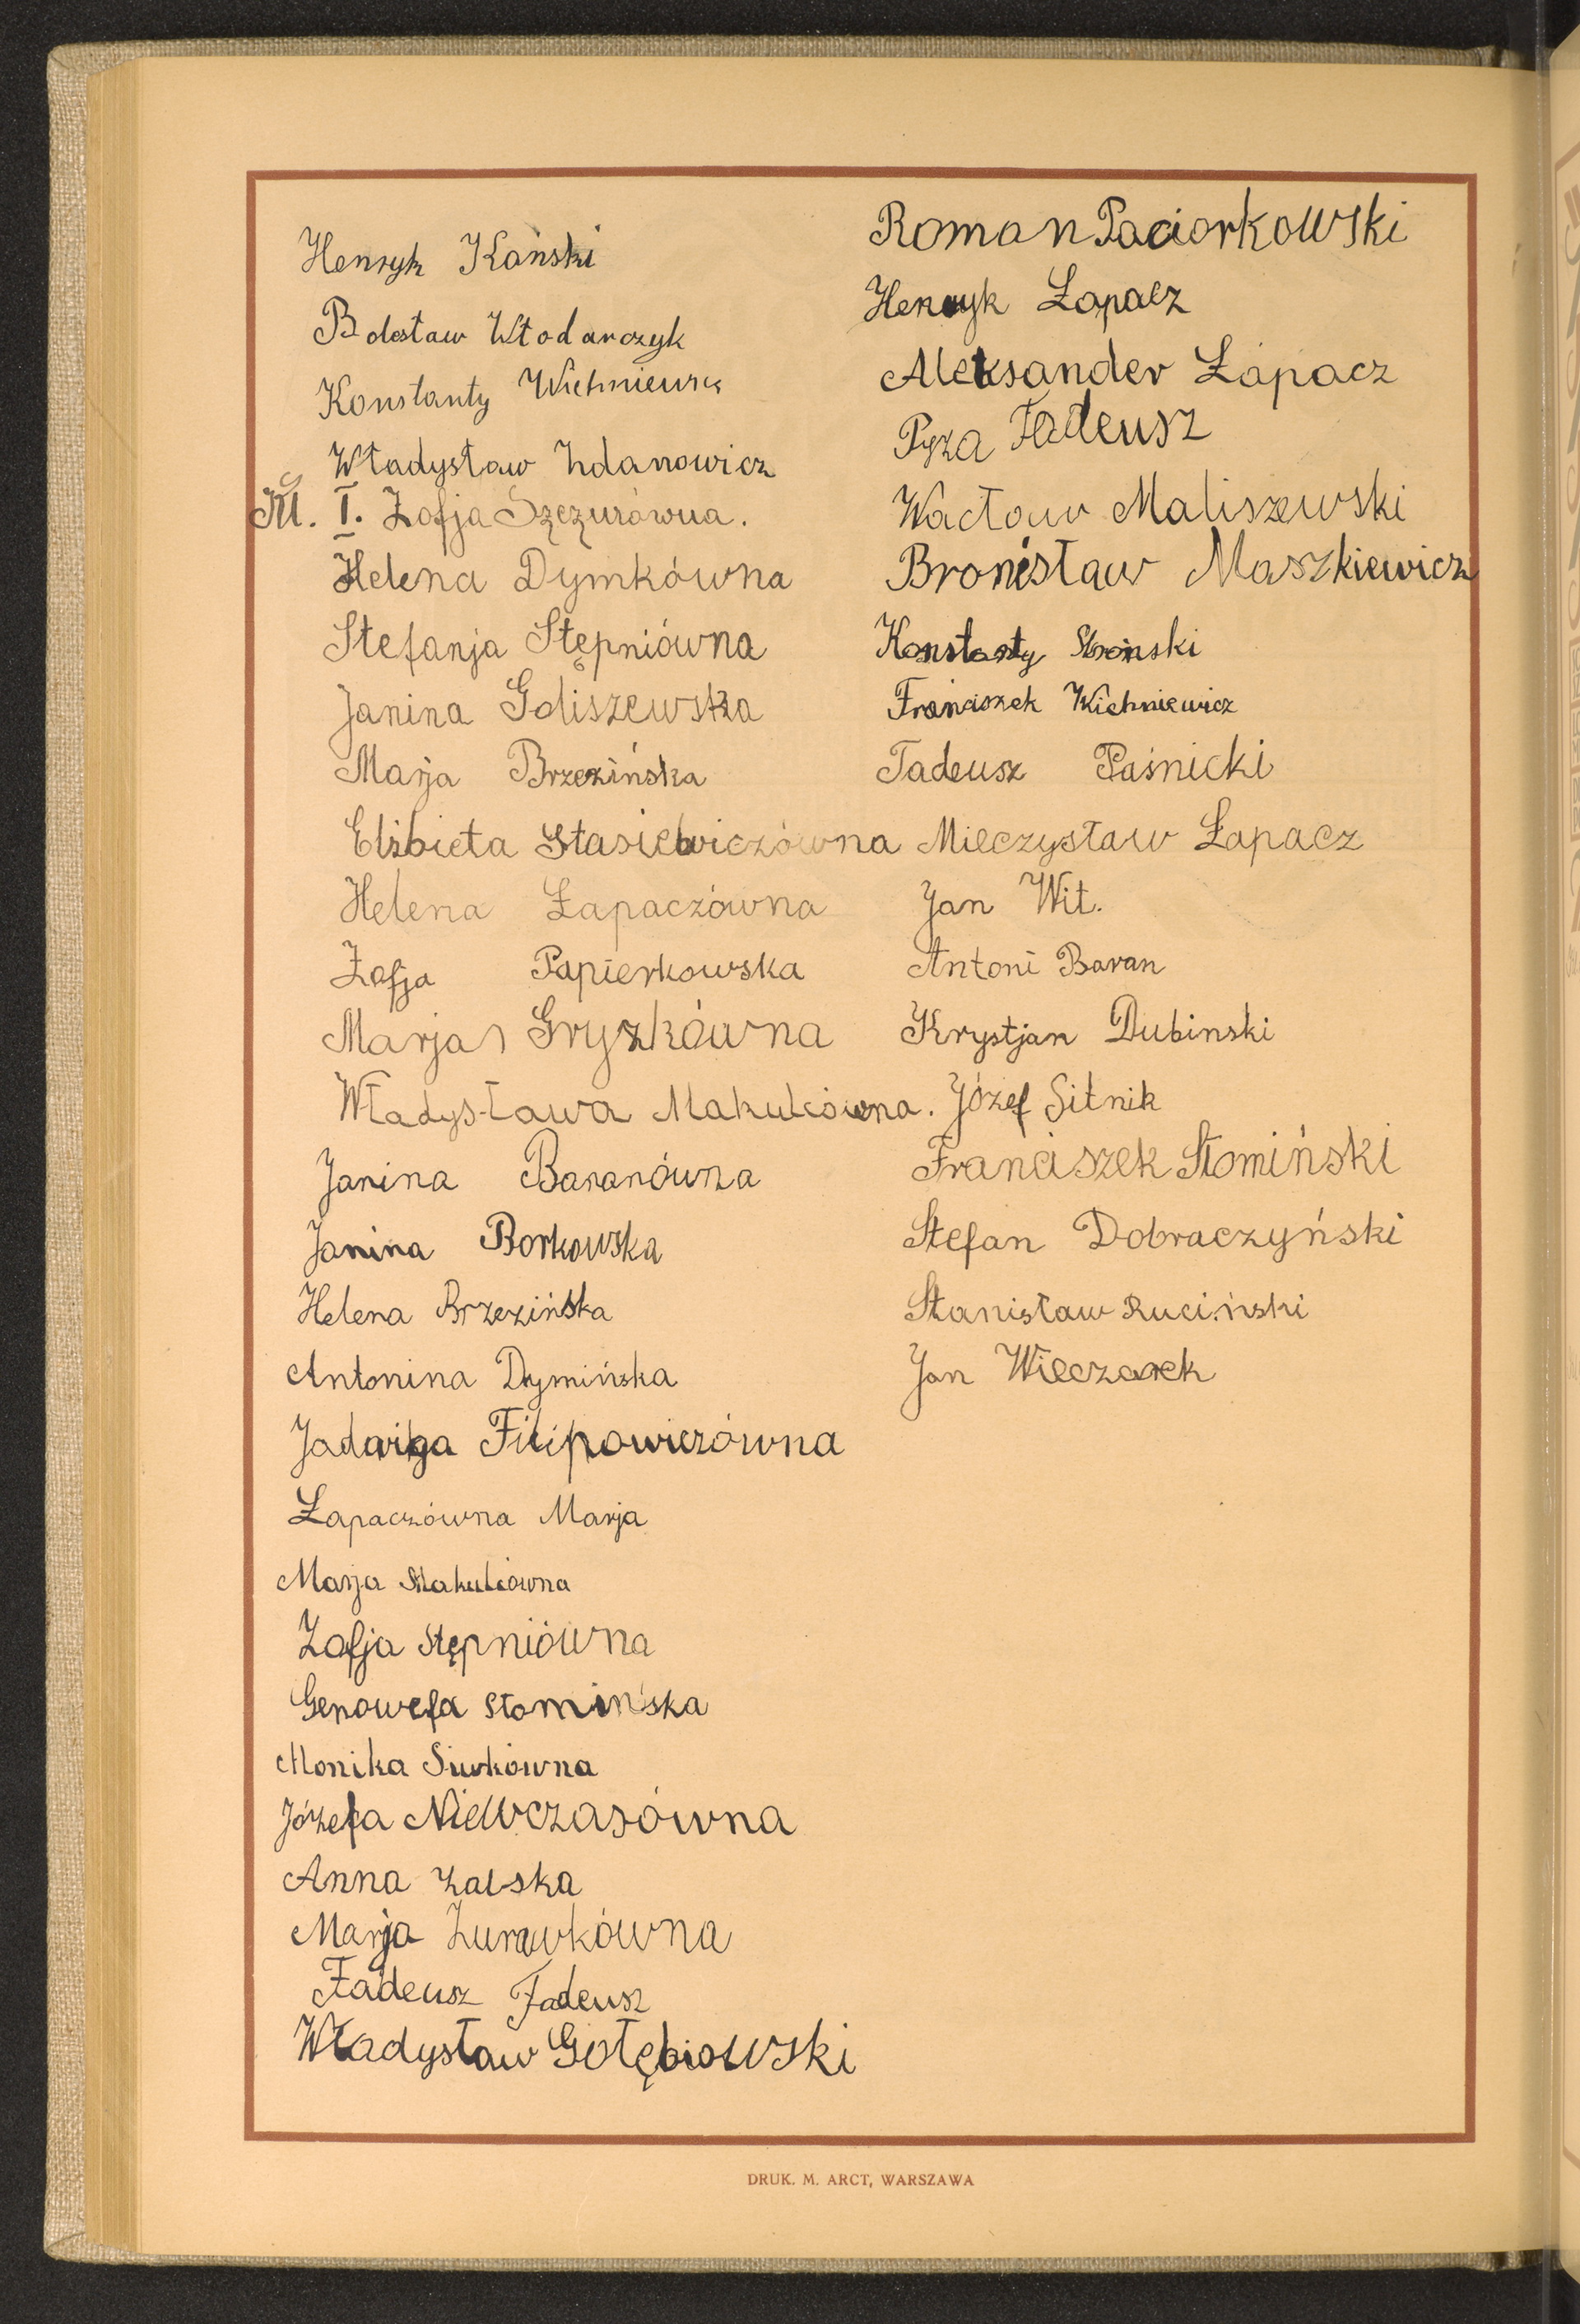 Henryk Kański
Bolesław Włodarczyk
Konstanty
Władysław Zdanowicz
Kl. I. Zofja Szczurówna.
Helena Dymkówna
Stefanja Stępniówna
Janina Goliszewska
Marja Brzezińska
Elżbieta Stasiewiczówna
Helena Łapaczówna
Zofja Papierkowska
Marja Gryzkówna
Władysława Makulcówna.
Janina Baranówna
Janina Borkowska
Helena Brzezińska
Antonina Dymińska
Jadwiga Filipowiczówna
Łapaczówna Marja
Marja Makulcówna
Zofja Stępniówna
Genowefa Słomińska
Monika Siwkówna
Józefa Niewczasówna
Anna Zalska
Marja Żurawkówna
Tadeusz Tadeusz
Władysław Gołębiowski
Roman Paciorkowski
Henryk Łapacz
Aleksander Łapacz
Pyza Tadeusz
Wacław Maliszewski
Bronisław Maszkiewicz
Konstanty
Franciszek Wichniewicz
Tadeusz Paśnicki
Mieczysław Łapacz
Jan Wit.
Antoni Baran
Krystjan Dubinski
Józef Sitnik
Franciszek Słomiński
Stefan Dobraczyński
Stanisław Ruciński
Jan Wieczorek
DRUK. M. ARCT, WARSZAWA